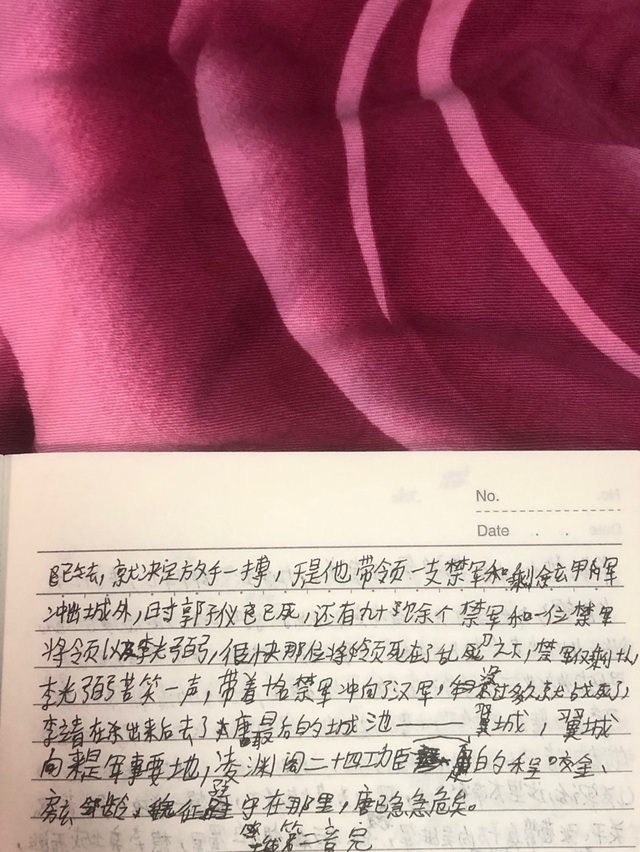 No.
Date
已去,就决定放手一搏,于是他带领一支禁军和剩余玄甲军
冲出城外,时郭子仪已死,还有九十余个禁军和一位禁军
将领以及李光弼,很快那位将领死在了乱刀之下,禁军仅剩十人
李光弼苦笑一声,带着十名禁军冲向了汉军,没过多久就战死了,
李靖在杀出来后去了大唐最后的城池——翼城,翼城
向来是军事要地,凌渊阁二十四功臣 的程咬金、
房玄龄、魏征 守在那里,唐已急急危矣。
第二章完